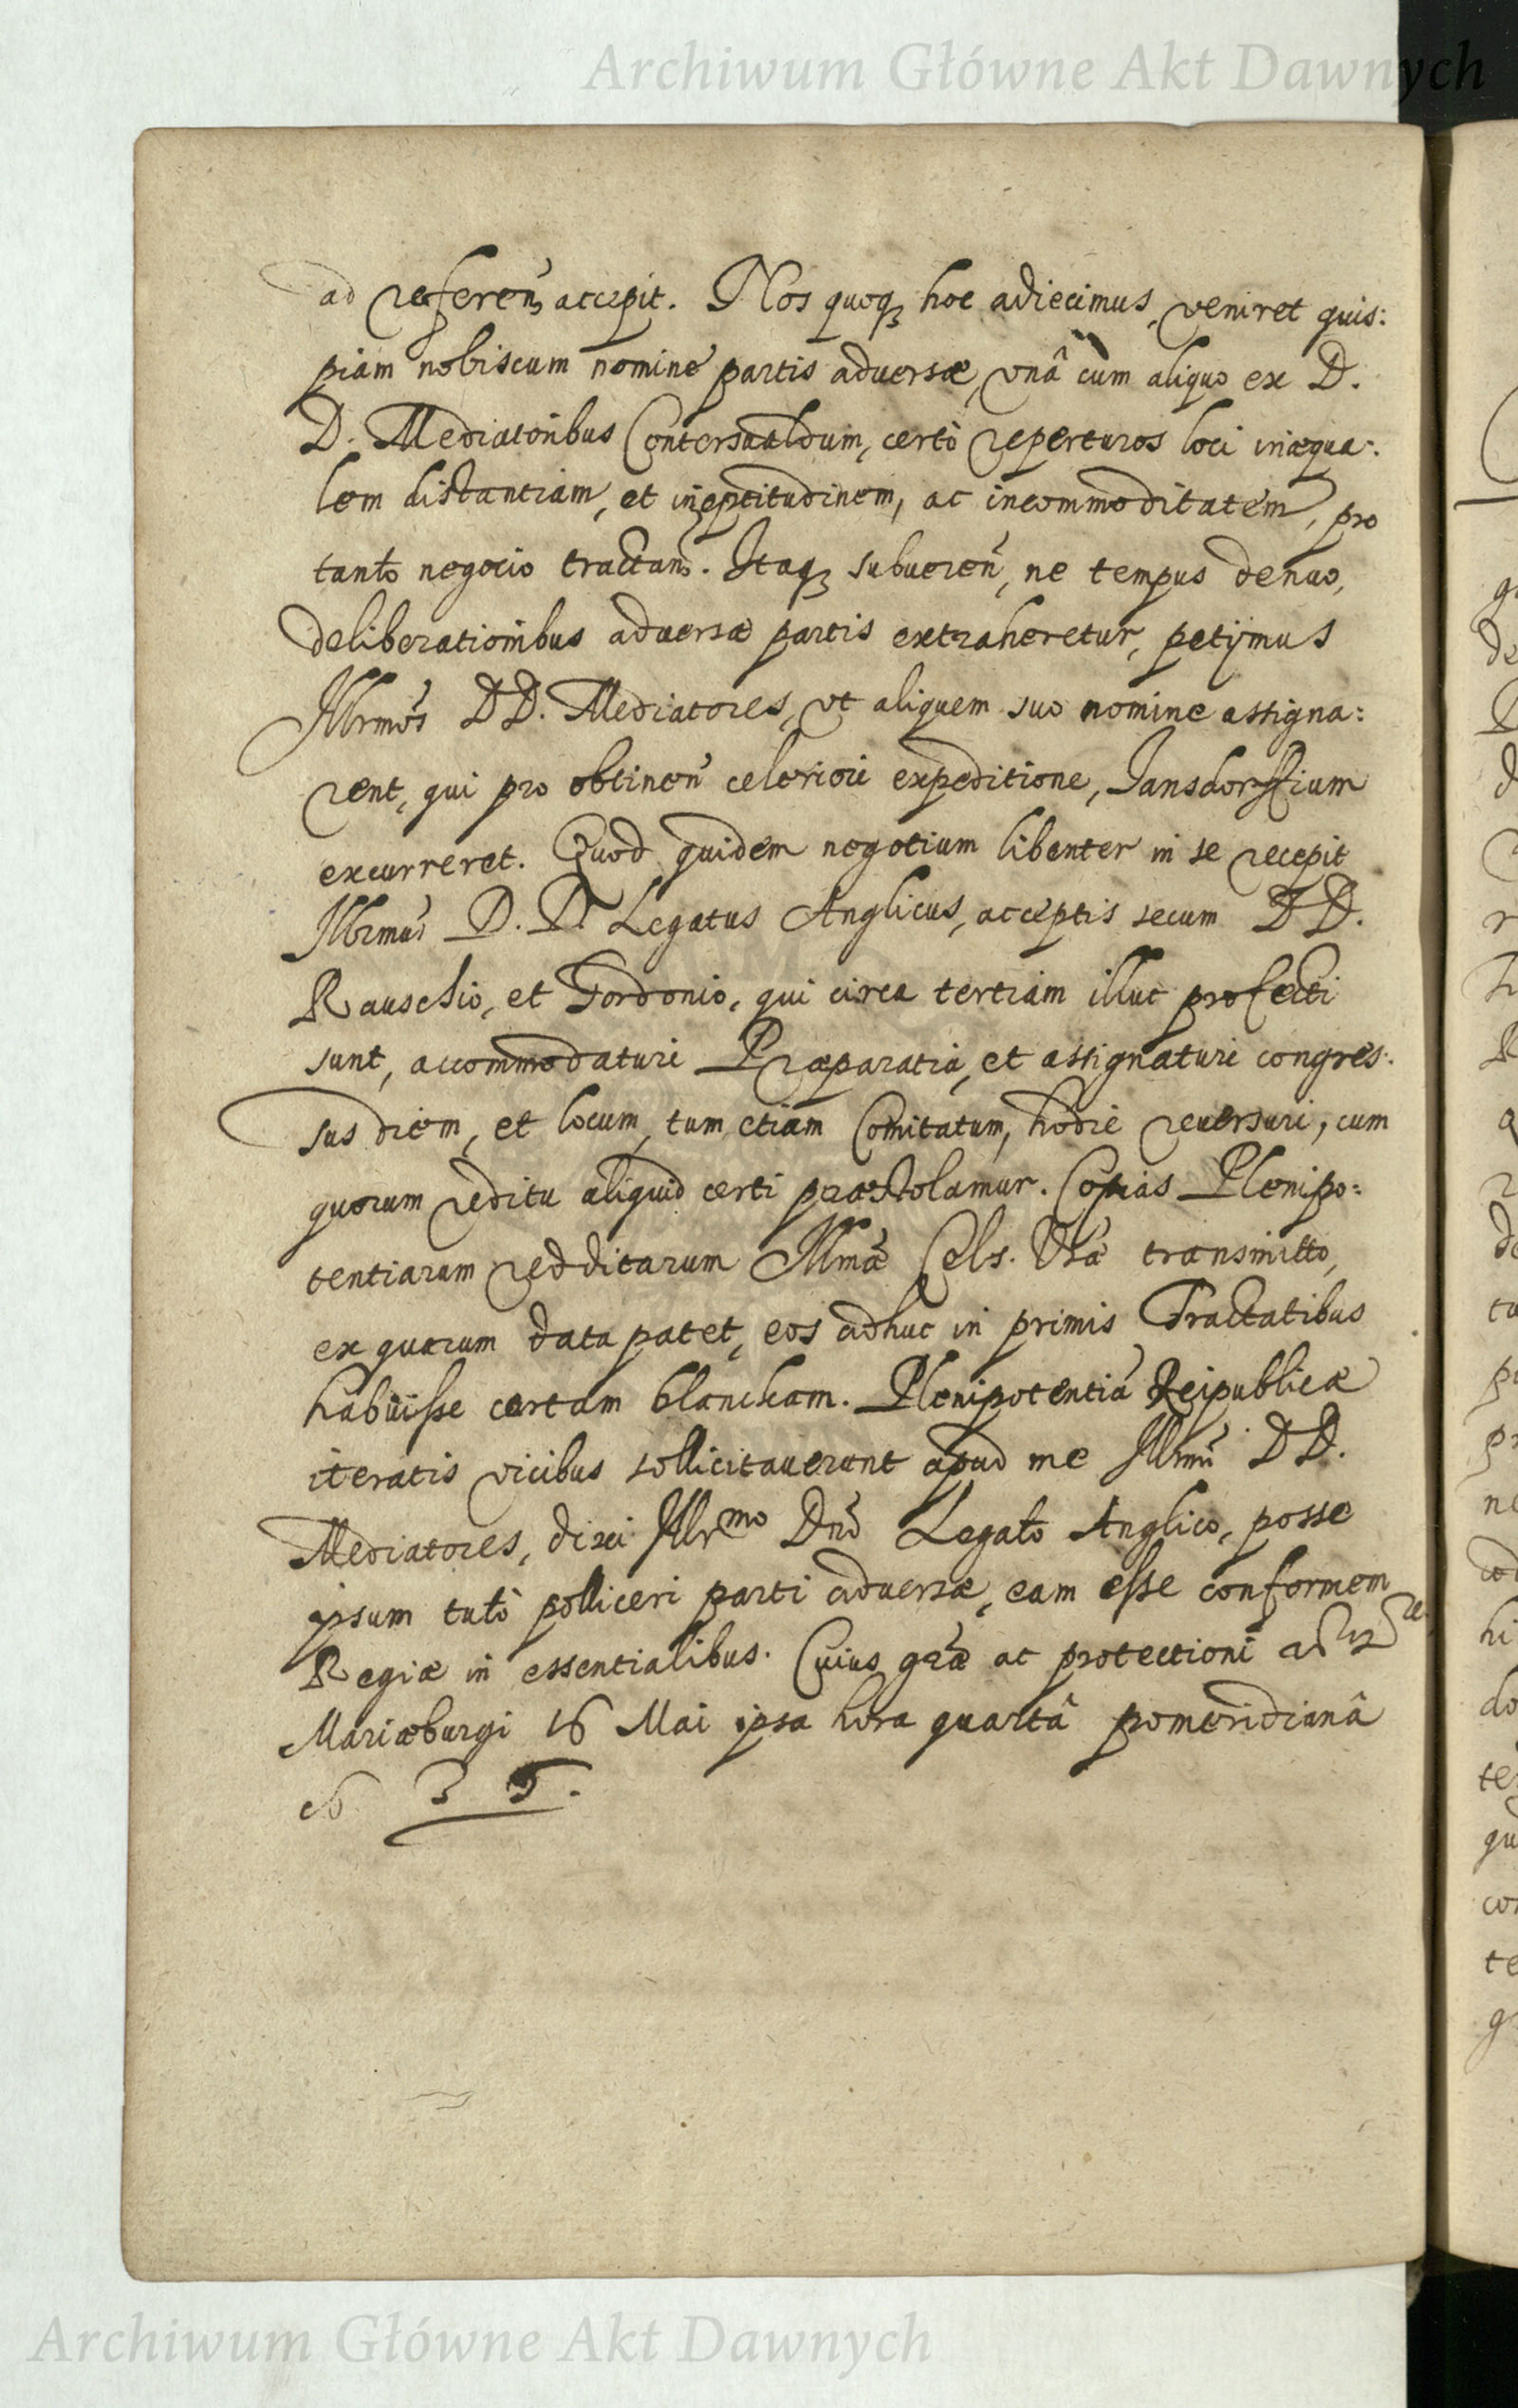 Archiwum Główne Akt Dawnych
ad referen, accepit. Nos quoq, hoc adiecimus, veniret quis:
piam nobiscum nomine partis aduersæ, vnâ cum aliquo ex D.
D. Mediatoribus Conterswaldum, certò reperturos loci inæqua:
lem distantiam, et ineptitudinem, ac incommoditatem, pro
tanto negocio tractan. Itaq, subueren, ne tempus denuo,
deliberationibus aduersæ partis extraheretur, petijmus
Illrmos DD. Mediatores, vt aliquem suo nomine assigna:
rent, qui pro obtinen celeriori expeditione, Jansdorffium
excurreret. Quod quidem negotium libenter in se recepit
Illrmus D. D. Legatus Anglicus, acceptis secum DD.
Rauschio, et Gordonio, qui circa tertiam illuc profecti
sunt, accommodaturi Præparatia, et assignaturi congres:
sus diem, et locum, tum etiam Comitatum, hodie reuersuri, cum
quorum reditu aliquid certi præstolamur. Copias Plenipo:
tentiarum redditarum Illmæ Cels. Vræ transmitto,
ex quarum data patet, eos adhuc in primis Tractatibus
habuisse cartam blancham. Plenipotentiã Reipublicæ
iteratis vicibus sollicitauerunt apud me Illrmi DD.
Mediatores, dixi Illrmo Dno Legato Anglico, posse
ipsum tutò polliceri parti aduersæ, eam esse conformem
Regiæ in essentialibus. Cuius græ ac protectioni
Mariæburgi 16 Mai ipsa hora quartâ pomeridianâ
16 35.
Archiwum Główne Akt Dawnych